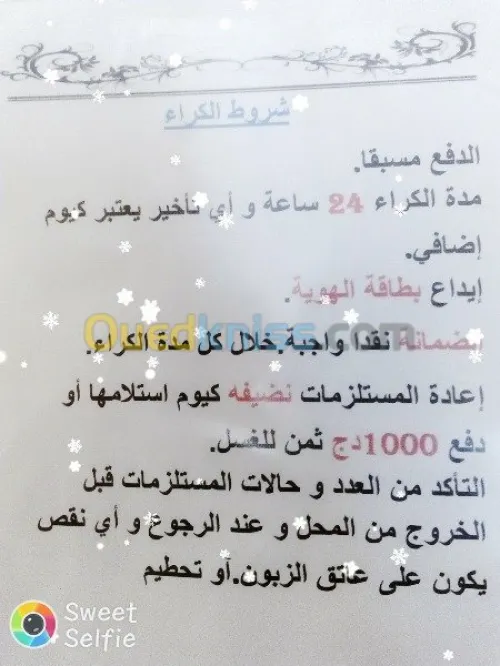 شروط الكراء
الدفع مسبقا.
مدة الكراء 24 ساعة و أي تأخير يعتبر كيوم
إضافي.
إيداع بطاقة الهوية.
بضمانة نقدا واجبة.خلال كل مدة الكراء.
Ouedkniss.com
إعادة المستلزمات نضيفه كيوم استلامها أو
دفع 1000دج ثمن للغسل.
التأكد من العدد و حالات المستلزمات قبل
الخروج من المحل و عند الرجوع و أي نقص
يكون على عاتق الزبون.أو تحطيم
Sweet
Selfie